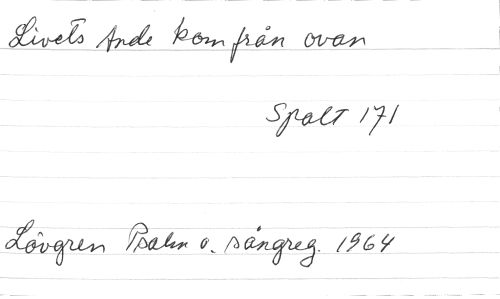 Livets Ande kom från ovan
Spalt 171
Lövgren Psalm o. sångreg. 1964